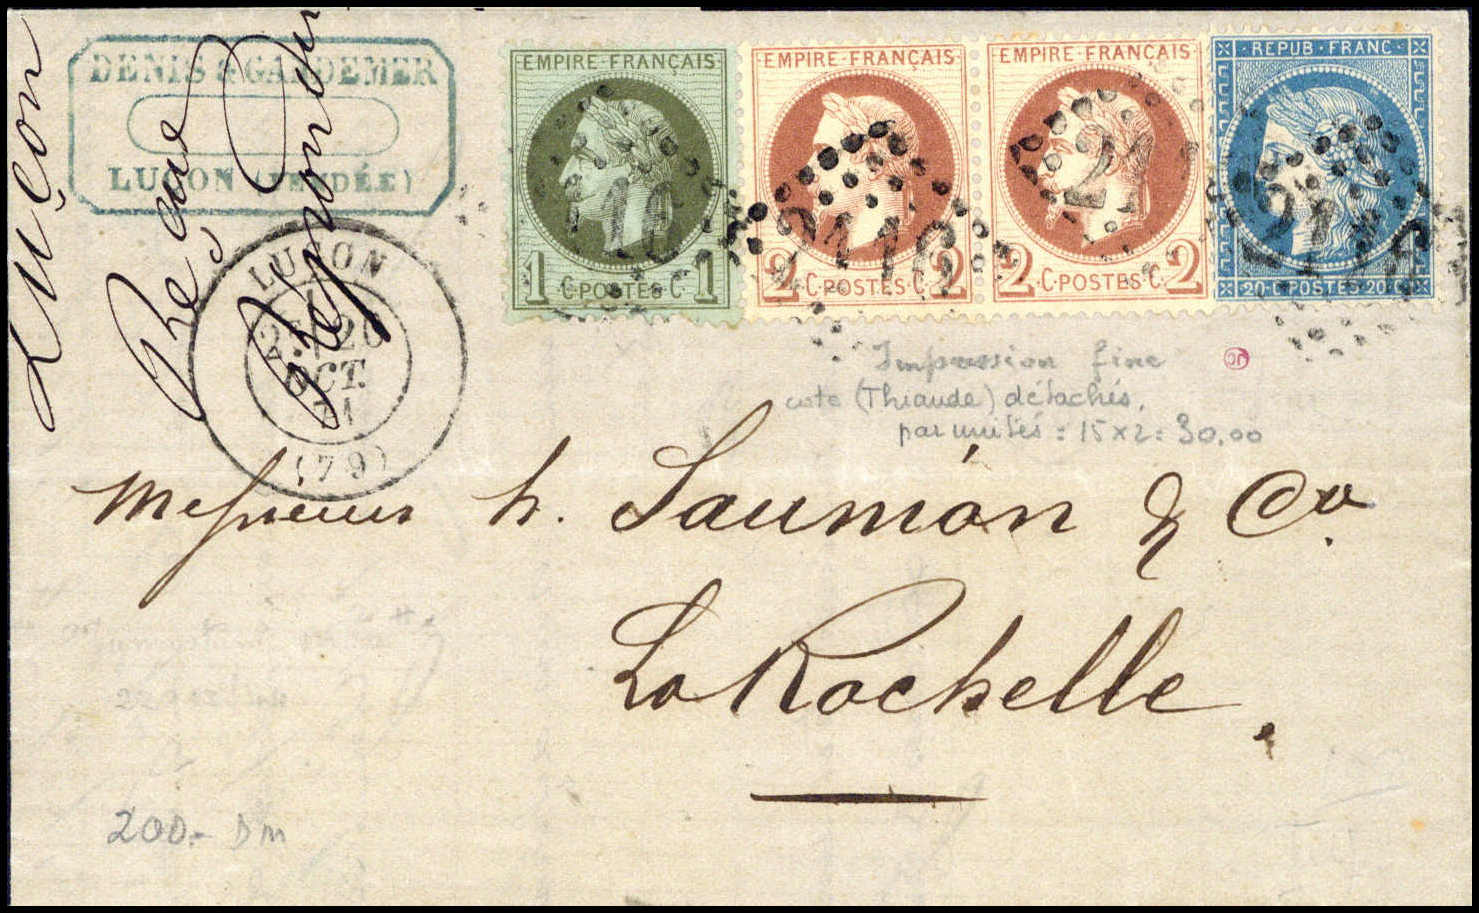 Luçon
DENIS & GANDEMER
LUÇON (VENDÉE)
LUÇON
26
OCT.
71
(79)
EMPIRE·FRANÇAIS
1 ·C·POSTES·C· 1
EMPIRE·FRANÇAIS
2 ·C·POSTES·C· 2
EMPIRE·FRANÇAIS
2 ·C·POSTES·C· 2
REPUB·FRANC·
20·C·POSTES·20·C
2118
Impression fine
cote (Thiaude) détachés,
par unités : 15 x 2 = 30,00
Messieurs h. Saumon & Co.
La Rochelle.
200.- DM